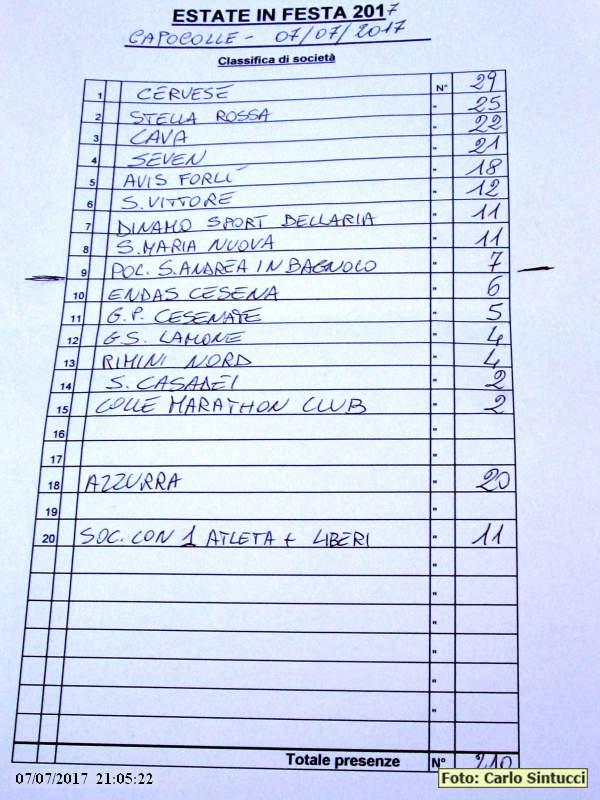 ESTATE IN FESTA 2017
CAPOCOLLE - 07/07/2017
Classifica di società
1 CERVESE N° 29
2 STELLA ROSSA " 25
3 CAVA " 22
4 SEVEN " 21
5 AVIS FORLI' " 18
6 S. VITTORE " 12
7 DINAMO SPORT BELLARIA " 11
8 S. MARIA NUOVA " 11
9 POL. S. ANDREA IN BAGNOLO " 7
10 ENDAS CESENA " 6
11 G.P. CESENATE " 5
12 G.S. LAMONE " 4
13 RIMINI NORD " 4
14 S. CASADEI " 2
15 COLLE MARATHON CLUB " 2
16 "
17 "
18 AZZURRA " 20
19 "
20 SOC. CON 1 ATLETA + LIBERI " 11
"
"
"
"
"
"
"
Totale presenze N° 210
07/07/2017 21:05:22
Foto: Carlo Sintucci